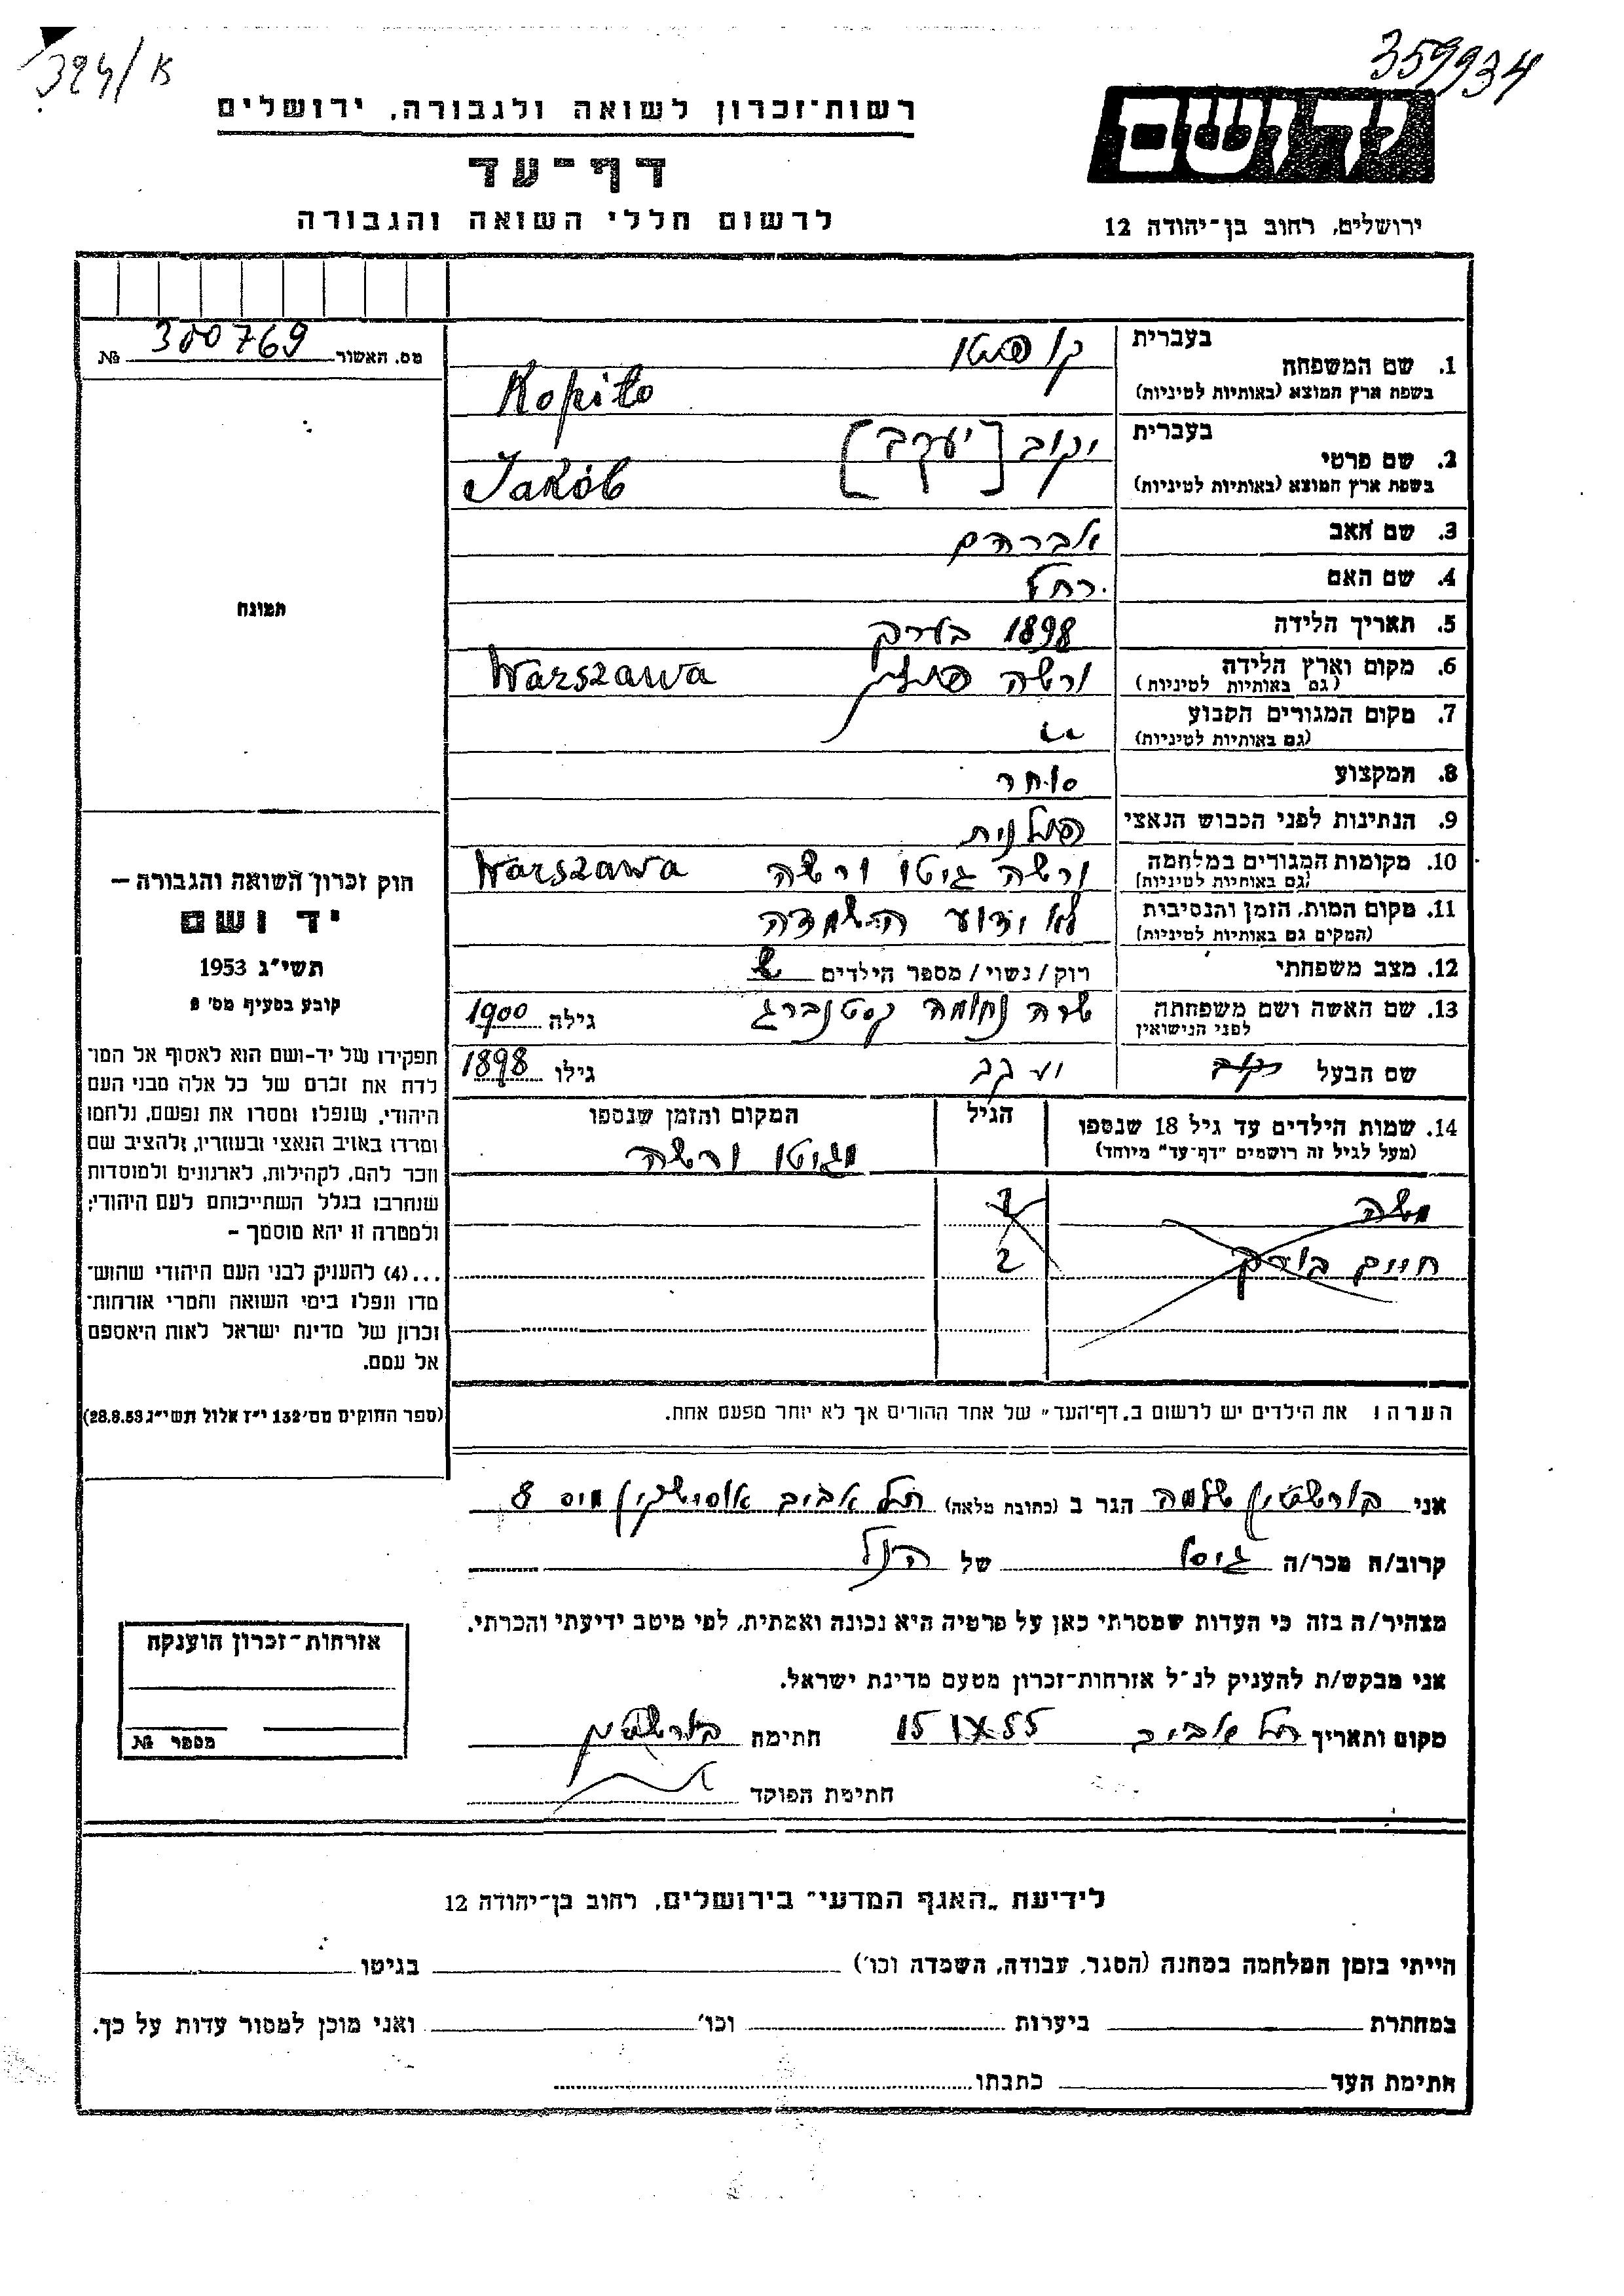 324/א
359934
רשות־זכרון לשואה ולגבורה, ירושלים
דף־עד
לרשום חללי השואה והגבורה
יד ושם
ירושלים, רחוב בן־יהודה 12
מס. האשור 300769 №
1. שם המשפחה
בעברית קופיטו
בשפת ארץ המוצא (באותיות לטיניות) Kopito
2. שם פרטי
בעברית יקוב [יעקב]
בשפת ארץ המוצא (באותיות לטיניות) Jakób
3. שם האב אברהם
4. שם האם רחל
5. תאריך הלידה 1898 בערך
6. מקום וארץ הלידה ורשה פולין Warszawa
(גם באותיות לטיניות)
7. מקום המגורים הקבוע "
(גם באותיות לטיניות)
8. המקצוע סוחר
9. הנתינות לפני הכבוש הנאצי פולנית
10. מקומות המגורים במלחמה ורשה גיטו ורשה Warszawa
(גם באותיות לטיניות)
11. מקום המות, הזמן והנסיבות לא ידוע השמדה
(המקום גם באותיות לטיניות)
12. מצב משפחתי רוק/נשוי/מספר הילדים
13. שם האשה ושם משפחתה שרה נחומה קסטנברג גילה 1900
לפני הנישואין
שם הבעל יעקב גילו 1898
14. שמות הילדים עד גיל 18 שנספו הגיל המקום והזמן שנספו
(מעל לגיל זה רושמים "דף־עד" מיוחד) גיטו ורשה
משה
חיים בורק 2
הערה! את הילדים יש לרשום ב„דף־העד" של אחד ההורים אך לא יותר מפעם אחת.
תמונה
חוק זכרון השואה והגבורה –
יד ושם
תשי"ג 1953
קובע בסעיף מס' 2
תפקידו של יד-ושם הוא לאסוף אל המו־
לדת את זכרם של כל אלה מבני העם
היהודי, שנפלו ומסרו את נפשם, נלחמו
ומרדו באויב הנאצי ובעוזריו, ולהציב שם
וזכר להם, לקהילות, לארגונים ולמוסדות
שנחרבו בגלל השתייכותם לעם היהודי;
ולמטרה זו יהא מוסמך –
...(4) להעניק לבני העם היהודי שהוש־
מדו ונפלו בימי השואה והמרי אזרחות־
זכרון של מדינת ישראל לאות היאספם
אל עמם.
(ספר החוקים מס' 132 י"ז אלול תשי"ג 28.8.53)
אני בורשטין שלמה הגר ב (כתובת מלאה) תל אביב אוסישקין 8
קרוב/ה מכר/ה גיסו של הנ"ל
מצהיר/ה בזה כי העדות שמסרתי כאן על פרטיה היא נכונה ואמתית, לפי מיטב ידיעתי והכרתי.
אני מבקש/ת להעניק לנ"ל אזרחות־זכרון מטעם מדינת ישראל.
מקום ותאריך תל אביב 15 IX 55 חתימה בורשטין
חתימת הפוקד
אזרחות־זכרון הוענקה
מספר №
לידיעת „האגף המדעי" בירושלים, רחוב בן־יהודה 12
הייתי בזמן המלחמה במחנה (הסגר, עבודה, השמדה וכו') בגיטו
במחתרת ביערות וכו' ואני מוכן למסור עדות על כך.
חתימת העד כתבתו